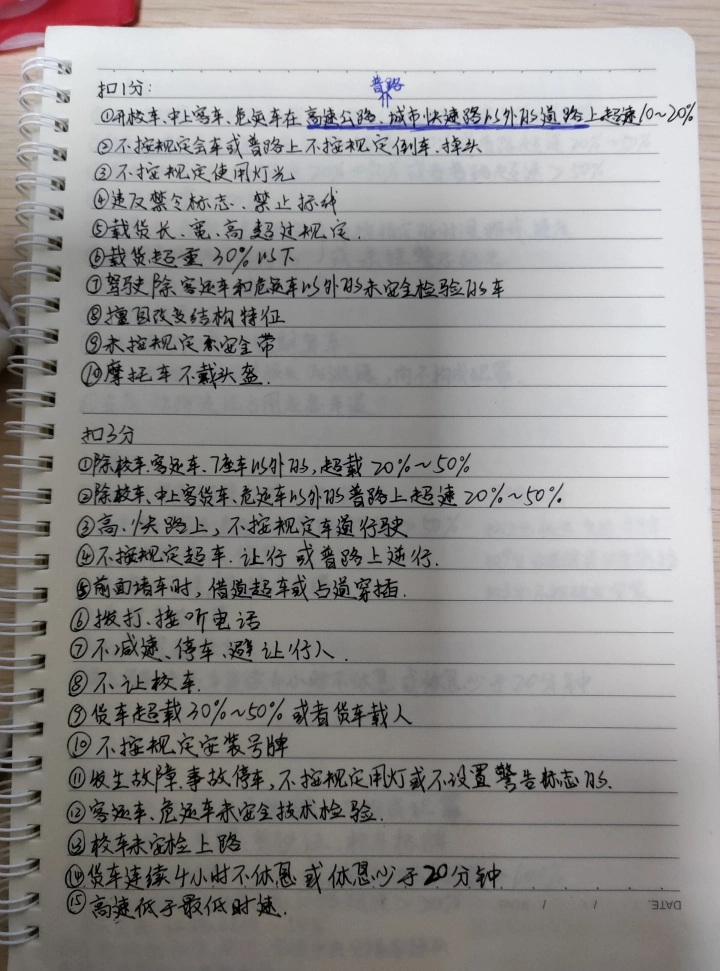 扣1分：
普路
①开校车、中上客车、危运车在高速公路、城市快速路以外的道路上超速10～20%
②不按规定会车或普路上不按规定倒车、掉头
③不按规定使用灯光
④违反禁令标志、禁止标线
⑤载货长、宽、高超过规定.
⑥载货超重30%以下
⑦驾驶除客运车和危运车以外的未安全检验的车
⑧擅自改变结构特征
⑨未按规定系安全带
⑩摩托车不戴头盔.
扣3分
①除校车、客运车、7座车以外的,超载20%～50%
②除校车、中上客货车、危运车以外的普路上超速20%～50%.
③高、快路上,不按规定车道行驶
④不按规定超车.让行或普路上逆行.
⑤前面堵车时,借道超车或占道穿插.
⑥拨打、接听电话
⑦不减速、停车、避让行人.
⑧不让校车.
⑨货车超载30%～50%或者货车载人
⑩不按规定安装号牌
⑪发生故障、事故停车,不按规定用灯或不设置警告标志的.
⑫客运车、危运车未安全技术检验.
⑬校车未安检上路
⑭货车连续4小时不休息或休息少于20分钟
⑮高速低于最低时速.
DATE. / /